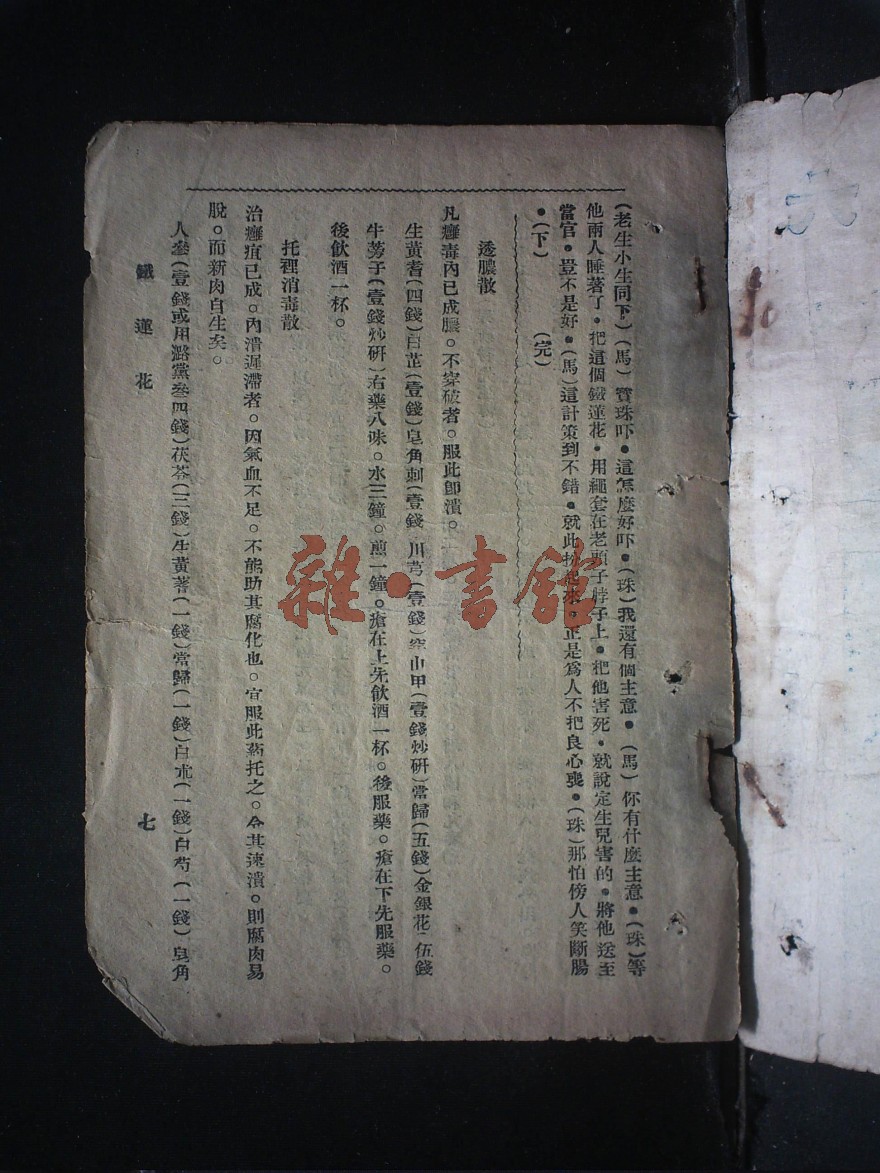 (老生小生同下)(馬)寶珠吓•這怎麽好吓•(珠)我還有個主意•(馬)你有什麽主意•(珠)等
他兩人睡著了•把這個鐵蓮花•用繩套在老頭子脖子上•把他害死•就說定生兒害的•將他送至
當官•豈不是好•(馬)這計策到不錯•就此扮起來•正是爲人不把良心喪•(珠)那怕傍人笑斷腸
•(下) (完)
透膿散
凡癰毒內已成膿。不穿破者。服此卽潰。
生黃耆(四錢)白芷(壹錢)皂角刺(壹錢 川芎(壹錢)穿山甲(壹錢炒研)當歸(五錢)金銀花 伍錢
牛蒡子(壹錢炒研)右藥八味。水三鐘。煎一鐘。瘡在上先飲酒一杯。後服藥。瘡在下先服藥。
後飲酒一杯。
托裡消毒散
治癰疽已成。內潰遲滯者。因氣血不足。不能助其腐化也。宜服此藥托之。令其速潰。則腐肉易
脫。而新肉自生矣。
人參(壹錢或用潞黨參四錢)茯苓(二錢)生黃蓍(一錢)當歸(一錢)白朮(一錢)白芍(一錢)皂角
鐵蓮花 七
雜•書館